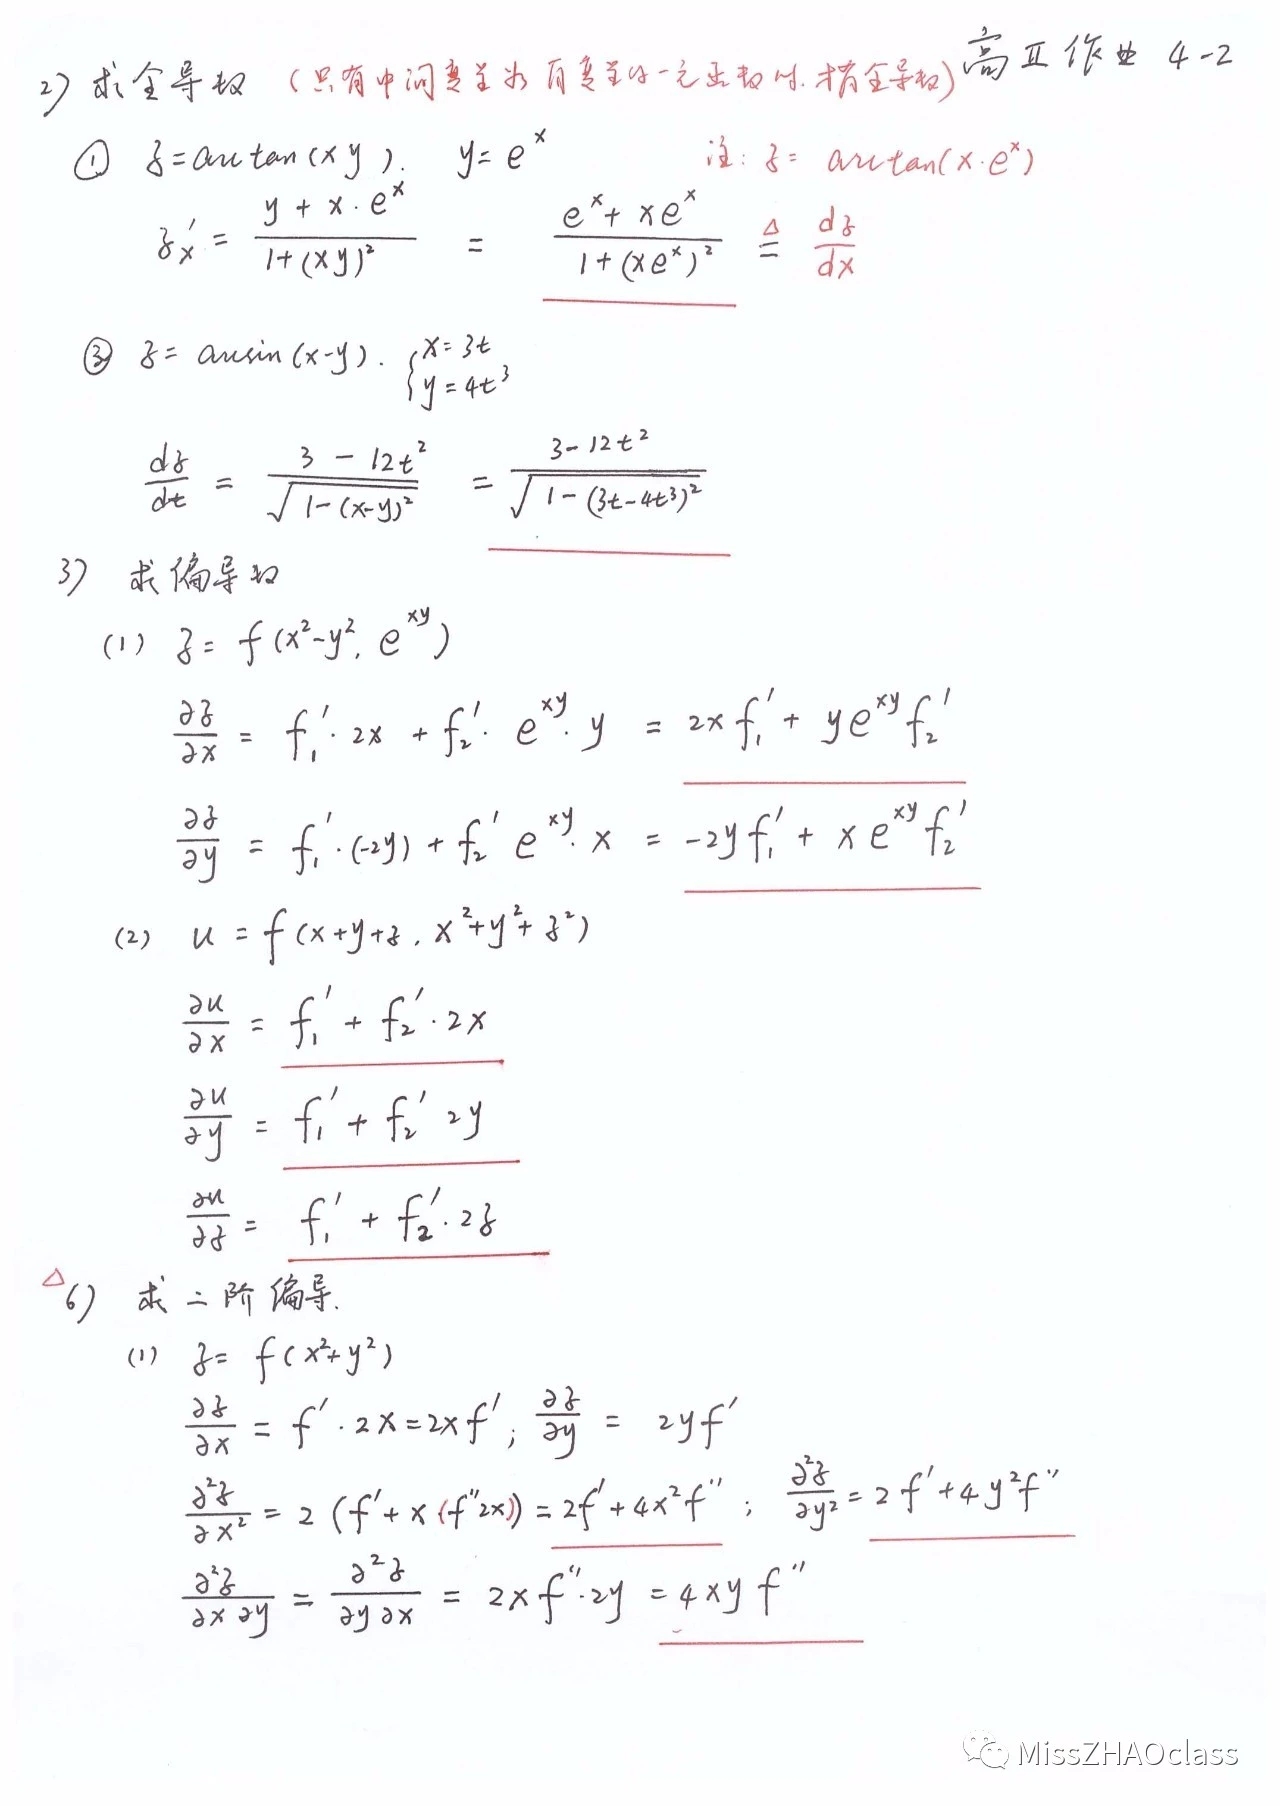 高Ⅱ作业 4-2
2) 求全导数 (只有中间变量为自变量的一元函数时.才有全导数)
① z=arctan(xy). y=eˣ 注: z= arctan(x·eˣ)
z'ₓ = (y+x·eˣ)/(1+(xy)²) = (eˣ+xeˣ)/(1+(xeˣ)²) ≜ dz/dx
③ z= arcsin(x-y). {x=3t
y=4t³
dz/dt = (3-12t²)/√(1-(x-y)²) = (3-12t²)/√(1-(3t-4t³)²)
3) 求偏导数
(1) z= f(x²-y², e^{xy})
∂z/∂x = f₁'·2x + f₂'·e^{xy}·y = 2xf₁' + ye^{xy}f₂'
∂z/∂y = f₁'·(-2y) + f₂' e^{xy}·x = -2yf₁' + xe^{xy}f₂'
(2) u = f(x+y+z, x²+y²+z²)
∂u/∂x = f₁' + f₂'·2x
∂u/∂y = f₁' + f₂' 2y
∂u/∂z = f₁' + f₂'·2z
△6) 求二阶偏导.
(1) z= f(x²+y²)
∂z/∂x = f'·2x=2xf'; ∂z/∂y = 2yf'
∂²z/∂x² = 2(f'+x(f''2x)) = 2f'+4x²f''; ∂²z/∂y² = 2f'+4y²f''
∂²z/∂x∂y = ∂²z/∂y∂x = 2xf''·2y = 4xyf''
MissZHAOclass